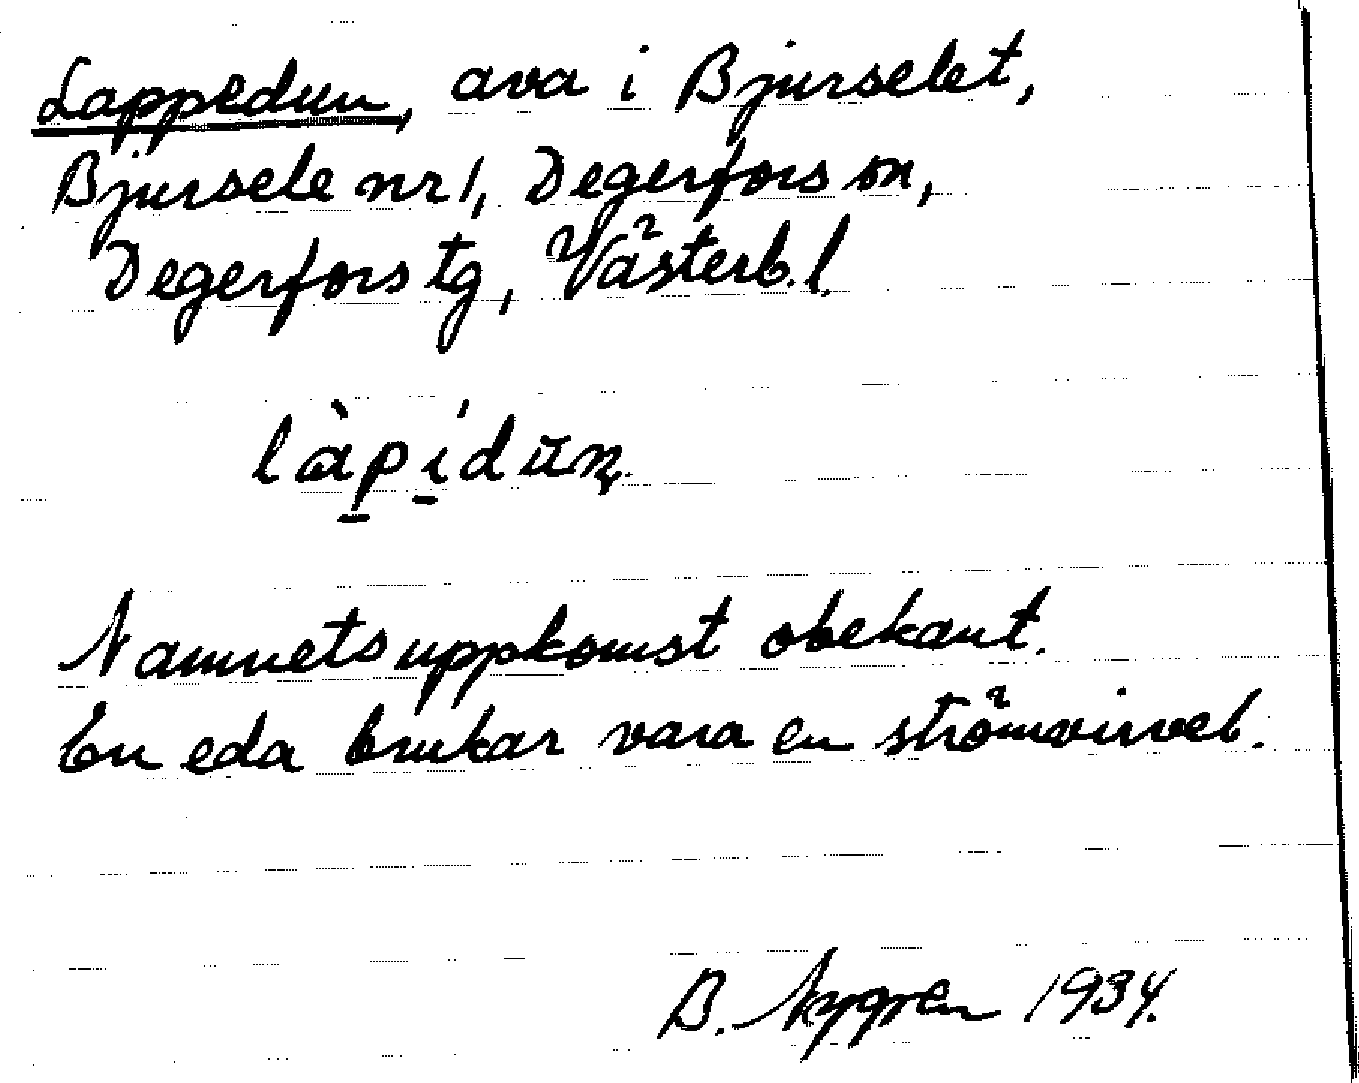 Lappedun, ava i Bjurselet,
Bjursele nr 1, Degerfors sn,
Degerfors tg, Västerb. l.
làpídūn
Namnets uppkomst obekant.
En eda brukar vara en strömvirvel.
B. Nygren 1934.